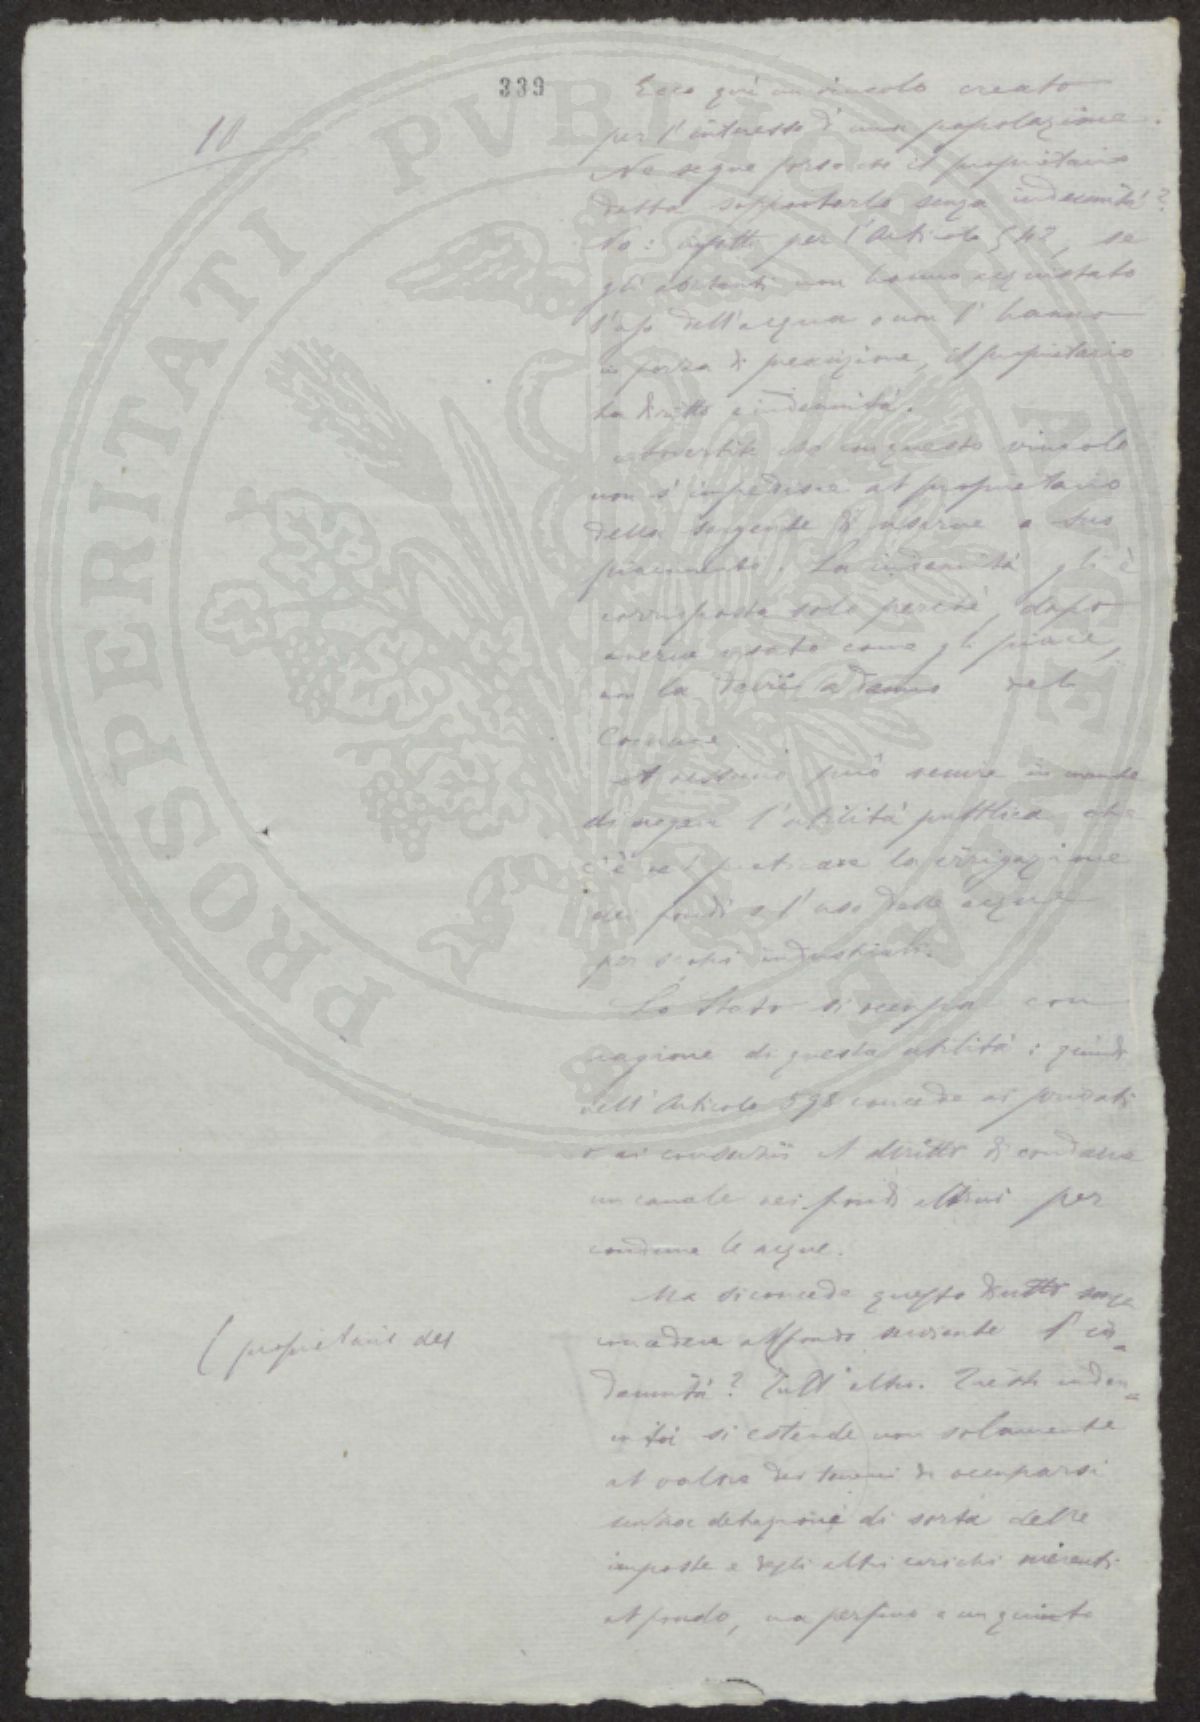 339
10
Ecco quì un vincolo creato
per l'interesse d'una popolazione.
Ne segue forse che il proprietario
debba sopportarlo senza indennità?
No: infatti per l'Articolo 542, se
gli abitanti non hanno acquistato
l'uso dell'acqua o non l'hanno
in forza di prescrizione, il proprietario
ha diritto a indennità.
Avvertite che con questo vincolo
non s'impedisce al proprietario
della sorgente di usarne a suo
piacimento. La indennità gli è
corrisposta solo perchè, dopo
averne usato come gli piace,
non la devii a danno del
Comune.
A nessuno può venire in mente
di negare l'utilità pubblica che
c'è nel praticare la irrigazione
dei fondi e l'uso delle acque
per scopi industriali.
Lo Stato si occupa con
ragione di questa utilità: quindi
nell'Articolo 598 concede ai privati
o ai consorzii il diritto di condurre
un canale nei fondi altrui per
condurre le acque.
Ma si concede questo diritto senza
concedere al fondo servente l'in-
dennità? Tutt'altro. Questa inden-
nità si estende non solamente
al valore dei terreni da occuparsi
senza detrazione di sorta delle
imposte e degli altri carichi inerenti
al fondo, ma perfino a un quinto
( proprietario del
PROSPERITATI PVBLICAE